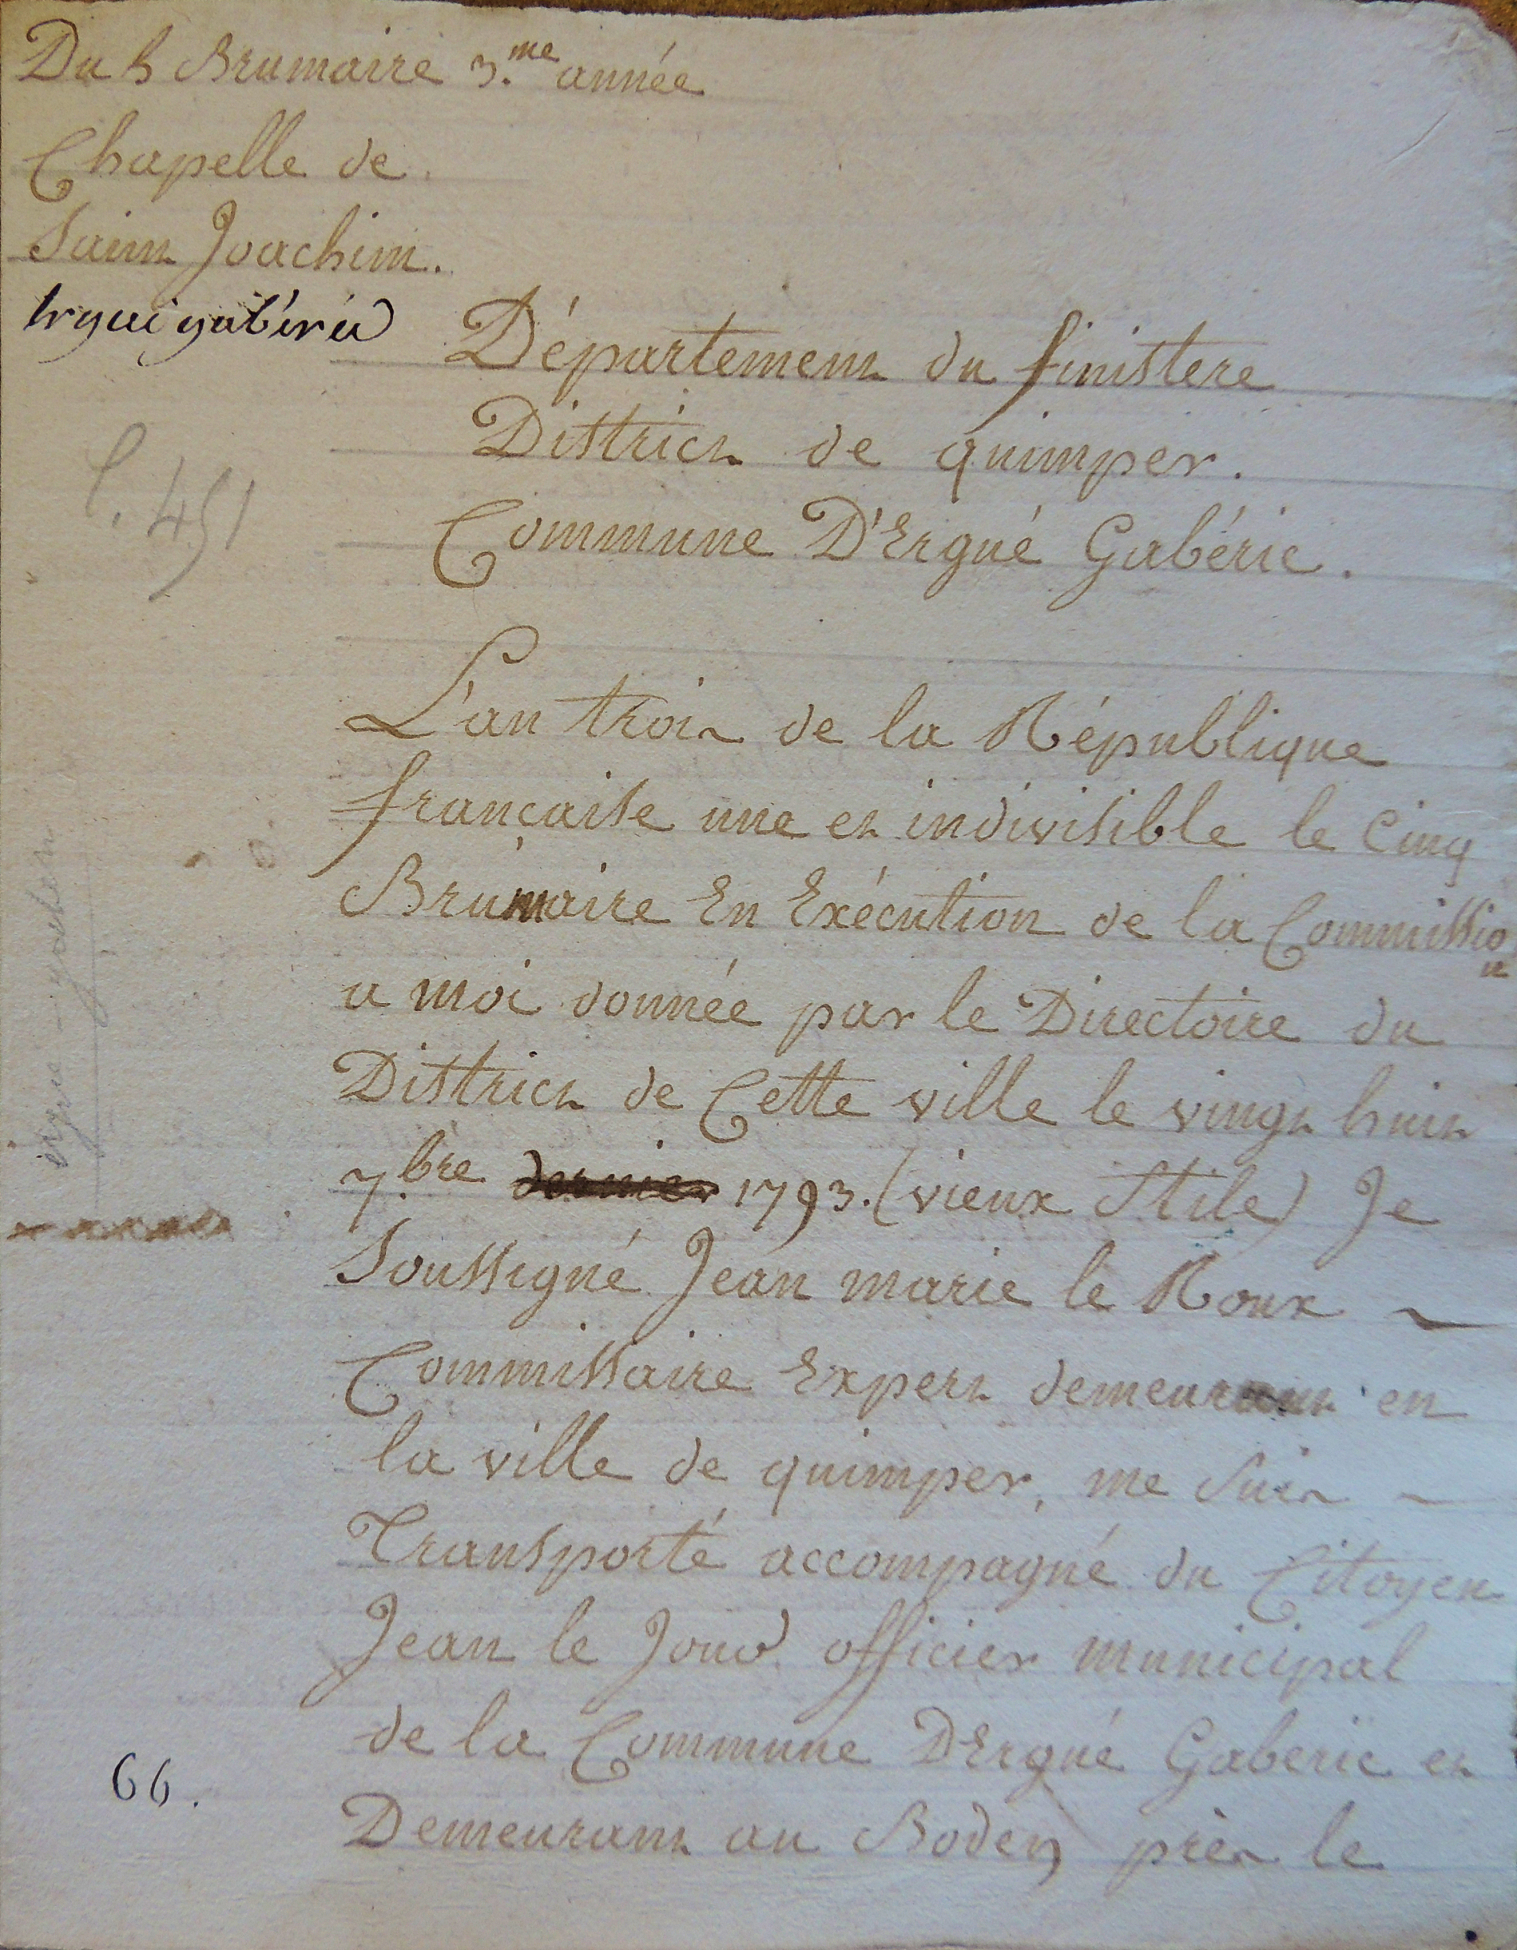 Du 5 Brumaire 3.me année
Chapelle de
Saint Joachim.
Ergué gabéric
Département du finistere
District de quimper.
Commune D'Ergué Gabéric.
C. 451
L'an trois de la République
française une et indivisible le Cinq
Brumaire En Exécution de la Commission
a moi donnée par le Directoire du
District de Cette ville le vingt huit
7.bre dernier 1793. (vieux Stile) Je
Soussigné Jean marie le Roux
Commissaire Expert demeurant en
la ville de quimper, me suis
Transporté accompagné du Citoyen
Jean le Jour officier municipal
de la Commune D'Ergué Gaberic et
Demeurant au Boden près le
66.